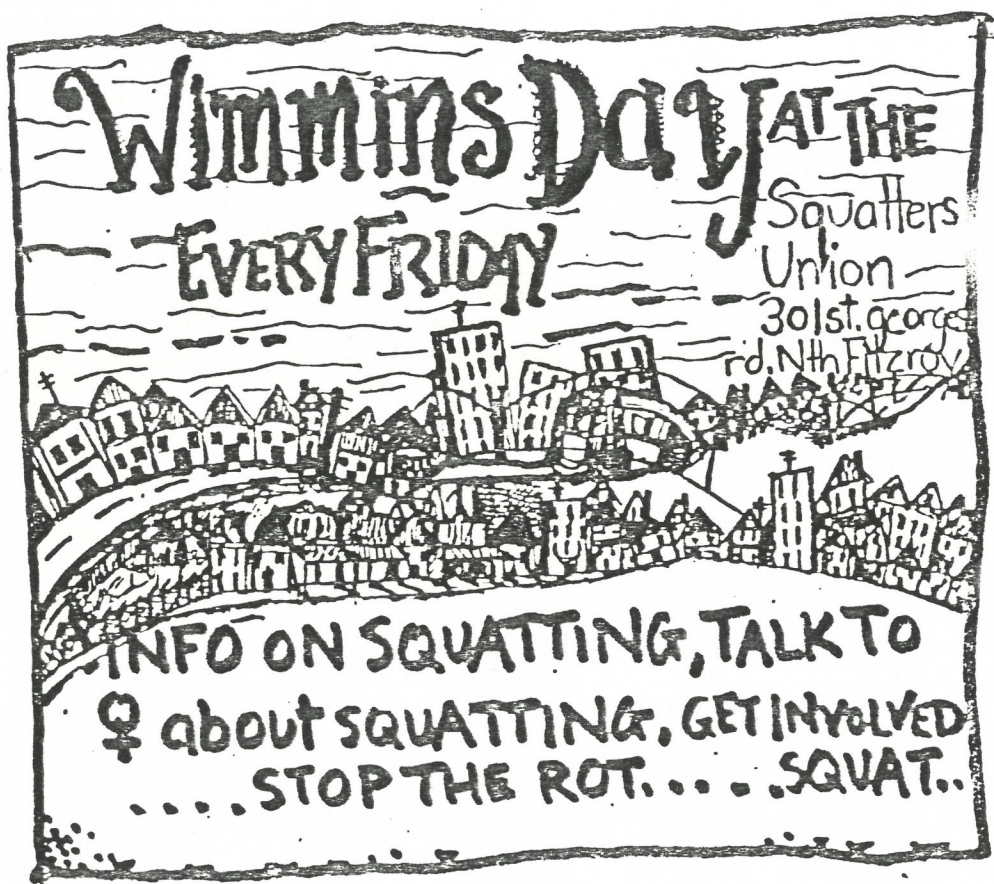 Wimmins Day AT THE
Squatters
EVERY FRIDAY
Union
301 st. georges
rd. Nth Fitzroy
INFO ON SQUATTING, TALK TO
♀ about SQUATTING, GET INVOLVED
.... STOP THE ROT..... SQUAT..